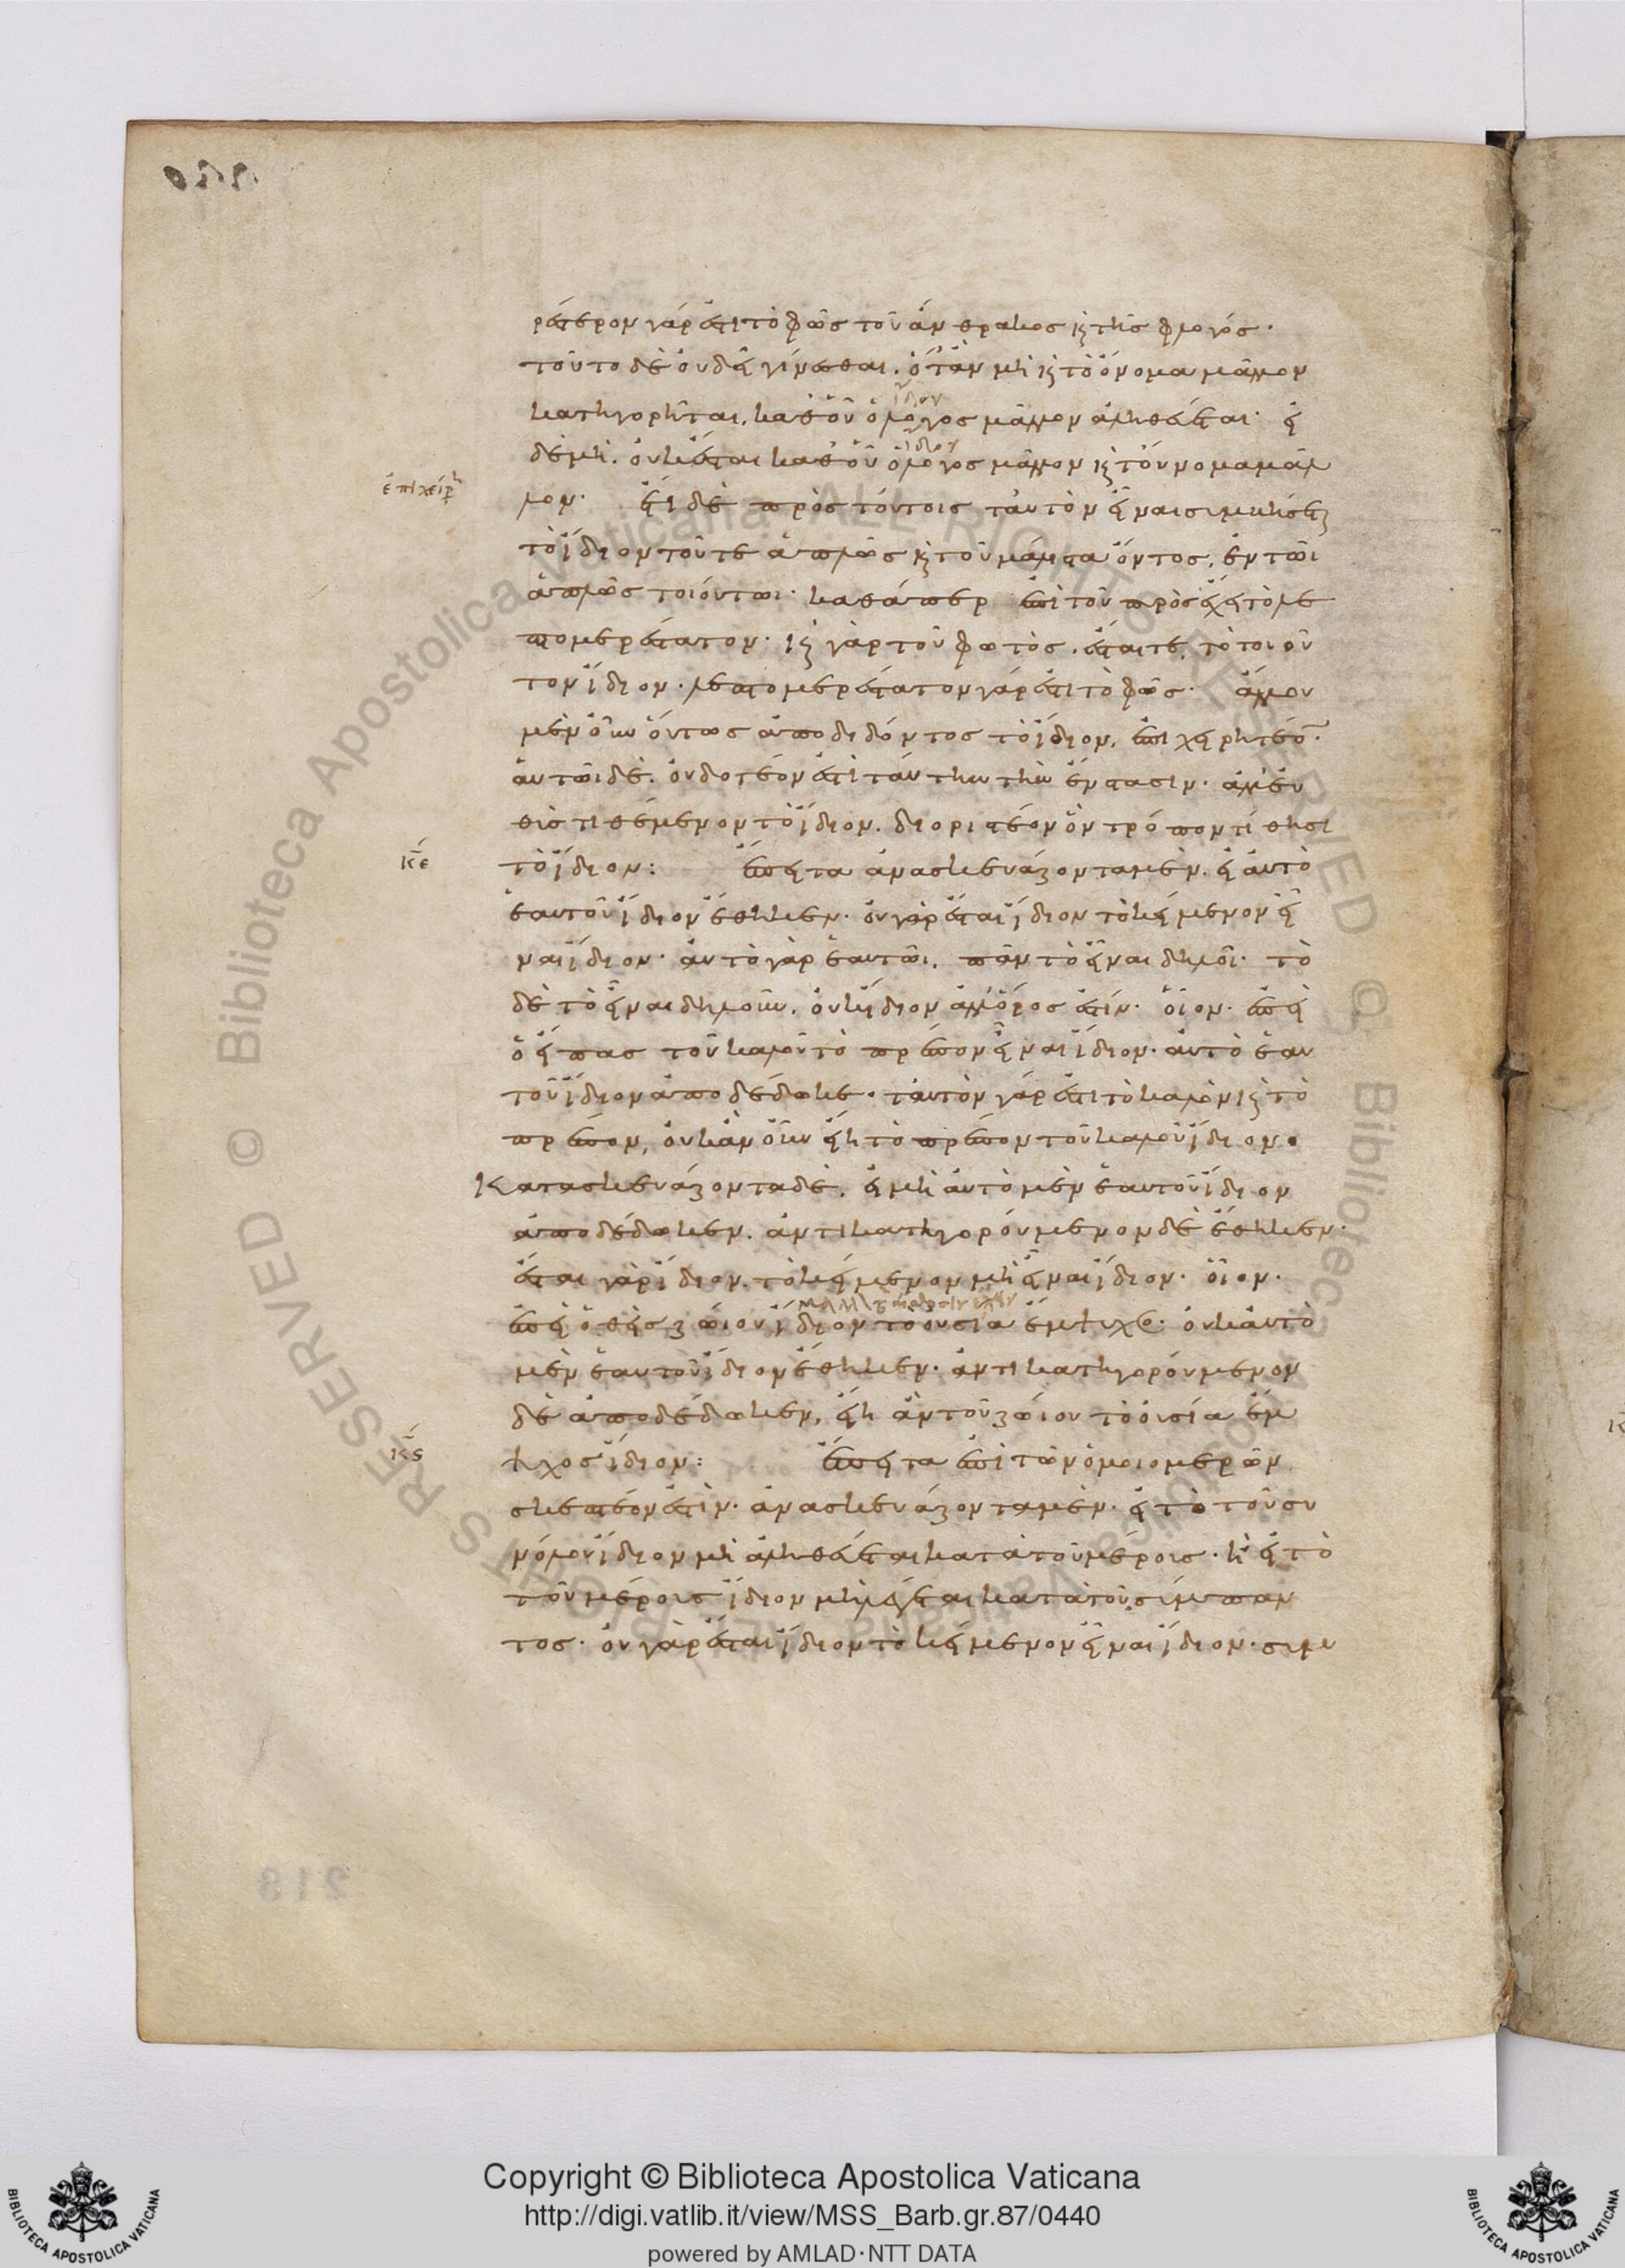 ρέστερον γάρ ἐστι τὸ φῶς τοῦ ἄνθρακος καὶ τῆς φλογός·
τοῦτο δὲ οὐ δεῖ γίνεσθαι, ὅταν μὴ καὶ τὸ ὄνομα μᾶλλον
ἴδιον
κατηγορῆται, καθ' οὗ ὁ λόγος μᾶλλον ἀληθεύεται· εἰ
ἴδιον
δὲ μή, οὐκ ἔσται καθ' οὗ ὁ λόγος μᾶλλον καὶ τοὔνομα μᾶλ
ἐπιχείρ
λον· ἔτι δὲ πρὸς τούτοις ταὐτὸν εἶναι συμβήσεται
τὸ ἴδιον τοῦ τε ἁπλῶς καὶ τοῦ μάλιστα ὄντος, ἐν τῶι
ἁπλῶς τοιούτωι· καθάπερ ἐπὶ τοῦ πυρὸς ἔχει τὸ λε
πτομερέστατον· καὶ γὰρ τοῦ φωτὸς, ἔσται τε, τὸ τοιοῦ
τον ἴδιον· λεπτομερέστατον γάρ ἐστι τὸ φῶς· ἄλλου
μὲν οὖν οὕτως ἀποδιδόντος τὸ ἴδιον, ἐπιχειρητέον·
αὐτῶι δὲ, οὐ δοτέον ἐστὶ ταύτην τὴν ἔνστασιν· ἀλλ' εὐ
θὺς τιθέμενον τὸ ἴδιον, διοριστέον ὃν τρόπον τίθησι
κε
τὸ ἴδιον: ἔπειτα ἀνασκευάζοντα μὲν, εἰ αὐτὸ
ἑαυτοῦ ἴδιον ἔθηκεν· οὐ γὰρ ἔσται ἴδιον τὸ κείμενον εἶ
ναι ἴδιον· αὐτὸ γὰρ ἑαυτῶι, πᾶν τὸ εἶναι δηλοῖ· τὸ
δὲ τὸ εἶναι δηλοῦν, οὐκ ἴδιον ἀλλ' ὅρος ἐστίν· οἷον· ἐπεὶ
ὁ εἴπας τοῦ καλοῦ τὸ πρέπον εἶναι ἴδιον· αὐτὸ ἑαυ
τοῦ ἴδιον ἀποδέδωκε· ταὐτὸν γάρ ἐστι τὸ καλὸν καὶ τὸ
πρέπον, οὐκ ἂν οὖν εἴη τὸ πρέπον τοῦ καλοῦ ἴδιον·
Κατασκευάζοντα δὲ, εἰ μὴ αὐτὸ μὲν ἑαυτοῦ ἴδιον
ἀποδέδωκεν, ἀντικατηγορούμενον δὲ ἔθηκεν·
ἔσται γὰρ ἴδιον, τὸ κείμενον μὴ εἶναι ἴδιον· οἷον·
ἐπεὶ ὁ θεὶς ζώιου ἴδιον τὸ οὐσία ἔμψυχος· οὐκ αὐτὸ
μὲν ἑαυτοῦ ἴδιον ἔθηκεν· ἀντικατηγορούμενον
δὲ ἀποδέδωκεν, εἴη ἂν τοῦ ζώιου τὸ οὐσία ἔμ
κς
ψυχος ἴδιον: ἔπειτα ἐπὶ τῶν ὁμοιομερῶν
σκεπτέον ἐστὶν· ἀνασκευάζοντα μὲν· εἰ τὸ τοῦ συ
νόλου ἴδιον μὴ ἀληθεύεται κατὰ τοῦ μέρους· ἢ εἰ τὸ
τοῦ μέρους ἴδιον μὴ λέγεται κατὰ τοῦ σύμπαν
τος· οὐ γὰρ ἔσται ἴδιον τὸ κείμενον εἶναι ἴδιον· συμ
Copyright © Biblioteca Apostolica Vaticana
http://digi.vatlib.it/view/MSS_Barb.gr.87/0440
powered by AMLAD·NTT DATA